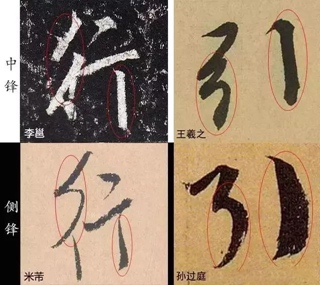 中锋
行
李邕
引
王羲之
侧锋
行
米芾
引
孙过庭